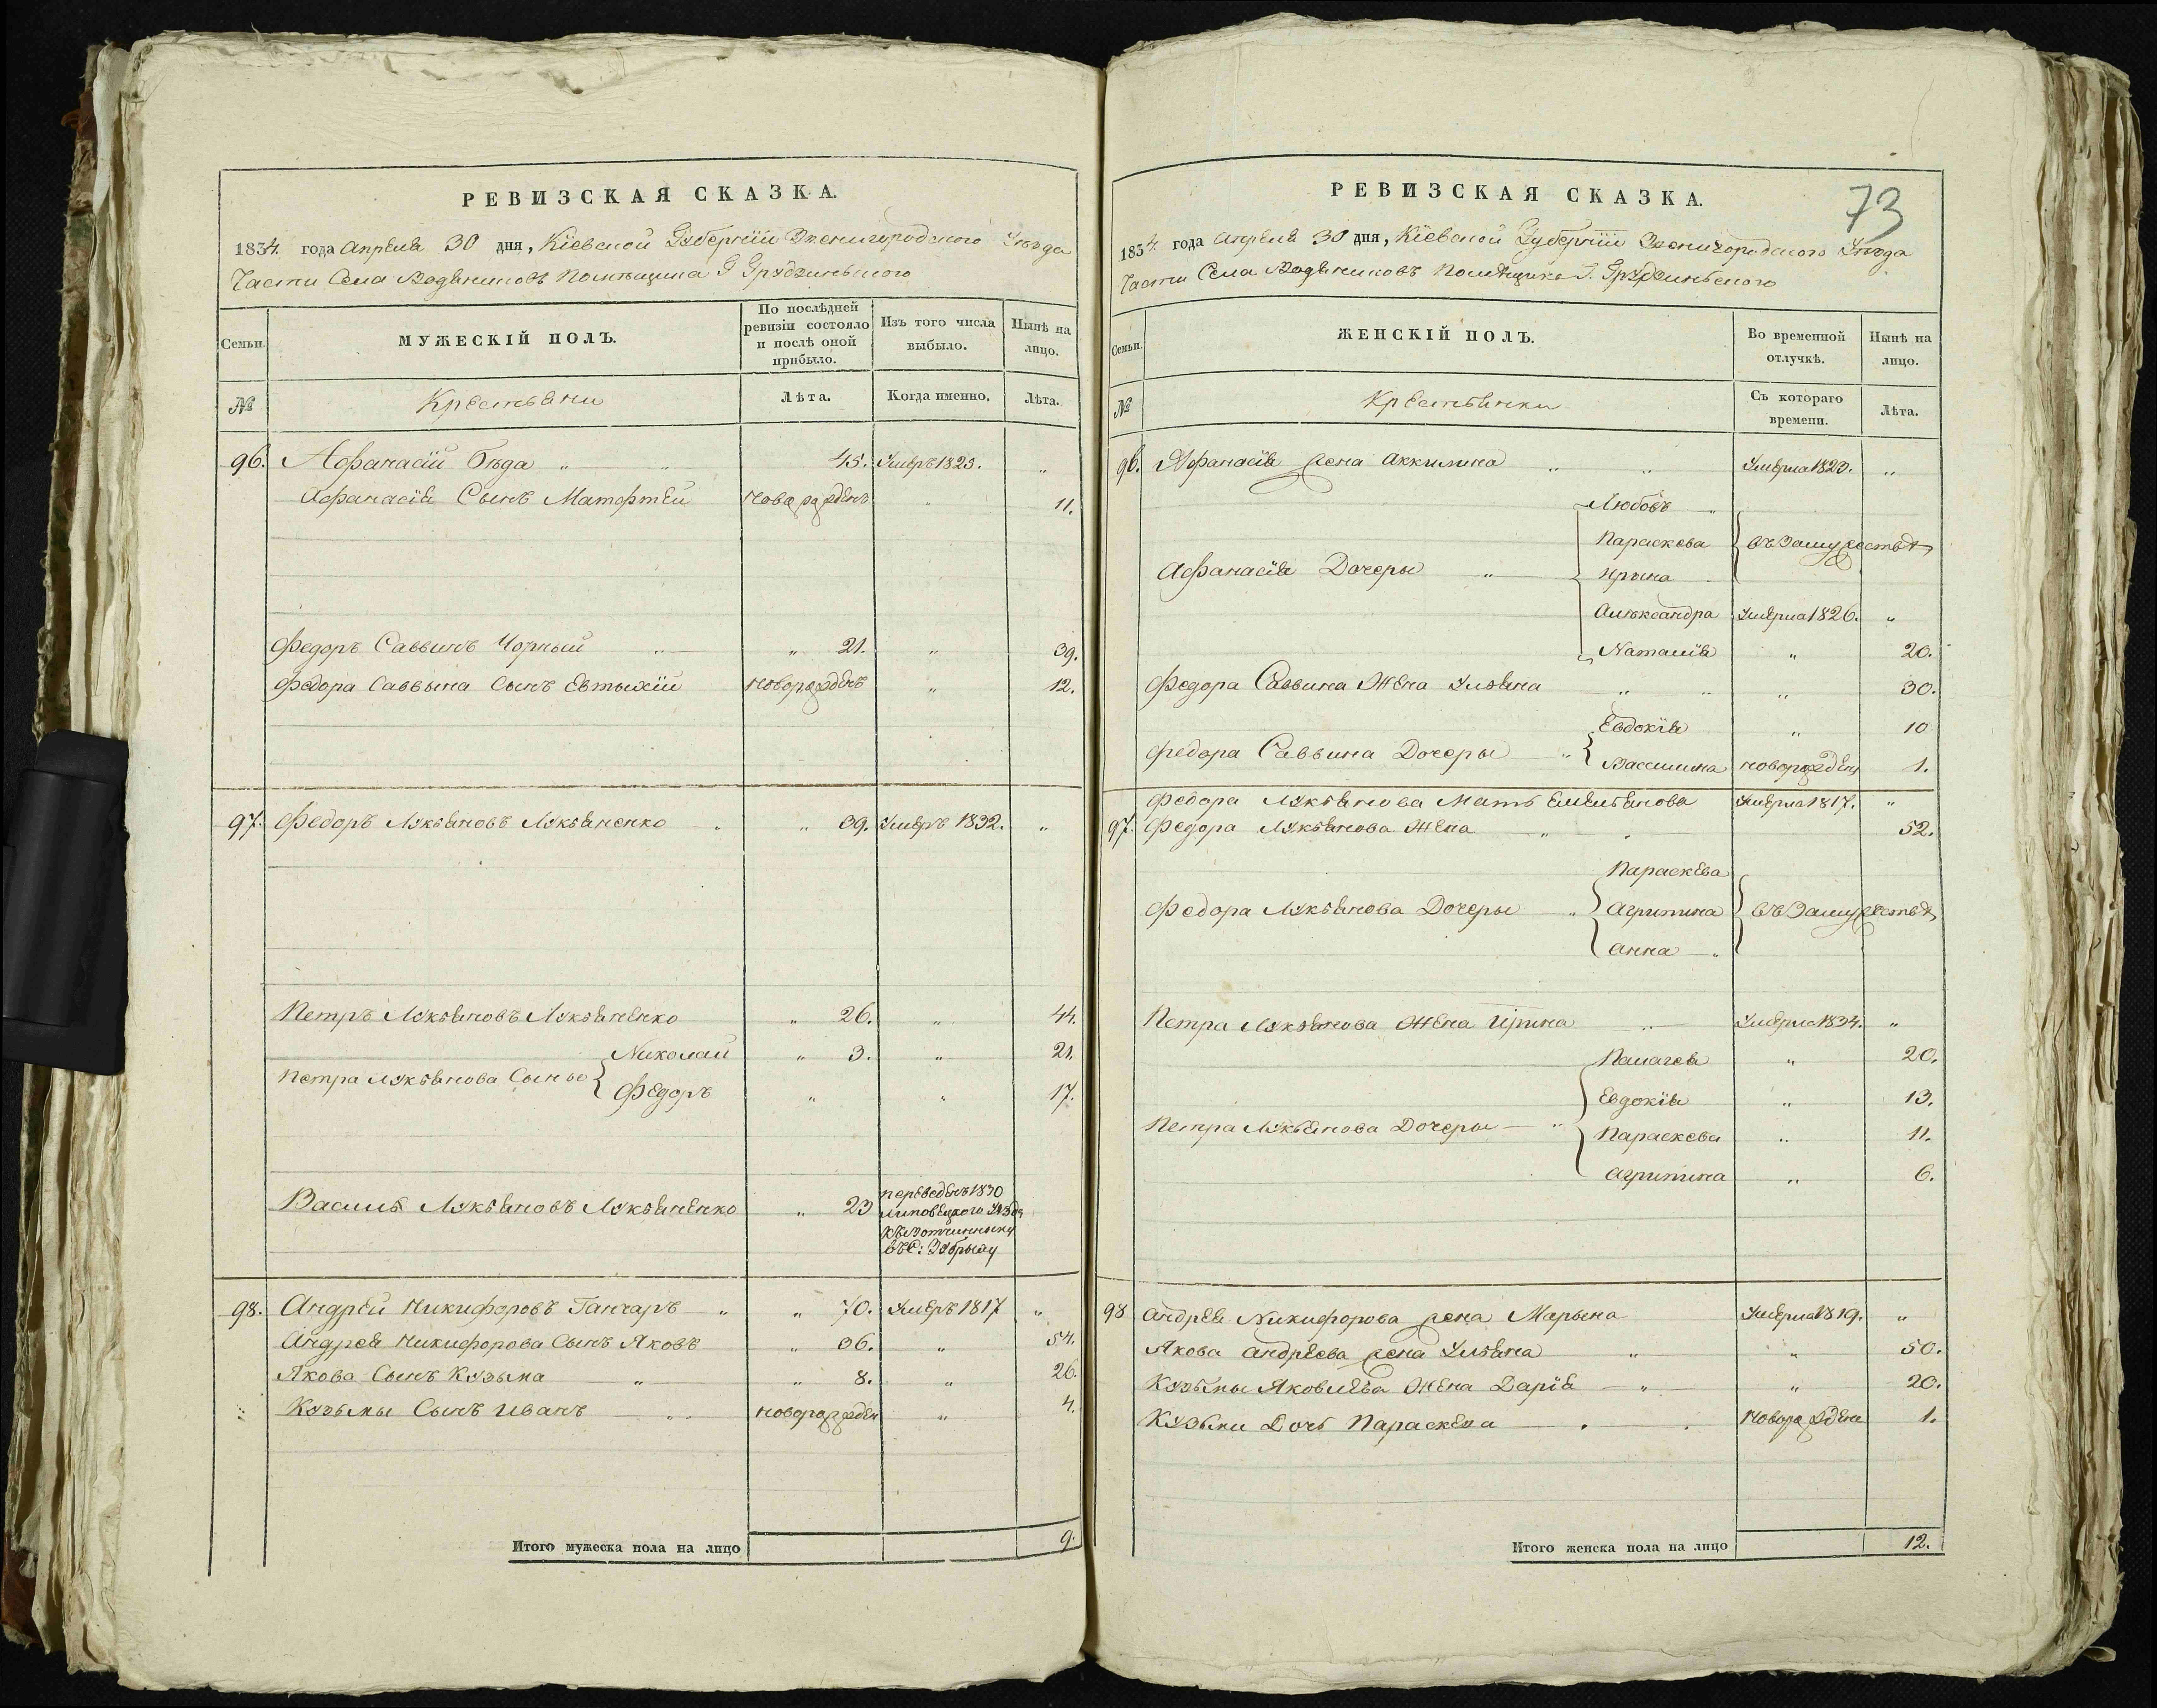 РЕВИЗСКАЯ СКАЗКА.
1834. года Апреля 30 дня, Кіевской Губерніи Звенигородского Уѣзда
Части Села Водяниковъ Помѣщика Г Грудзинского
Семьи.
МУЖЕСКІЙ ПОЛЪ.
По послѣдней ревизіи состояло и послѣ оной прибыло.
Изъ того числа выбыло.
Нынѣ на лицо.
№
Крестьяни
Лѣта.
Когда именно.
Лѣта.
96. Афанасій Бѣда „ „ 45. Умеръ 1823. „
Афанасія Сынъ Матфтей новорожденъ „ 11.
Федоръ Саввинъ Чорный „ „ 21. „ 39.
Федора Саввына Сынъ Евтыхій новорожденъ „ 12.
97. Федоръ Лукьяновъ Лукьяненко „ „ 39. Умеръ 1832. „
Петръ Лукьяновъ Лукьяненко „ 26. „ 44.
Николай „ 3. „ 21.
Петра Лукьянова Сыны
Федоръ „ „ 17.
Василь Лукьяновъ Лукьяненко „ 23 переведенъ 1830
Липовецкого Уѣзда
въ С:
98. Андрей Никифоровъ Ганчаръ „ „ 70. Умеръ 1817 „
Андрея Никифорова Сынъ Яковъ „ 36. „ 54.
Якова Сынъ Кузьма „ „ 8. „ 26.
Козьмы Сынъ Иванъ „ новорожден „ 4.
Итого мужеска пола на лицо 9.
73
РЕВИЗСКАЯ СКАЗКА.
1834. года Апреля 30 дня, Кіевской Губерніи Звенигородского Уѣзда
Части Села Водяниковъ Помѣщика Г. Грудзинского
Семьи.
ЖЕНСКІЙ ПОЛЪ.
Во временной отлучкѣ.
Нынѣ на лицо.
№
Крестьянки
Съ котораго времени.
Лѣта.
96. Афанасія жена Аккилина „ „ Умерла 1823. „
Любовъ „
Параскева въ Замужествѣ
Афанасія Дочеры „ Ирына
Алѣксандра Умерла 1826. „
Наталія „ 20.
Федора Саввина Жена Ульяна „ „ „ 30.
Евдокія „ 10
Федора Саввина Дочеры „
Васылина новорожден 1.
Федора Лукьянова Мать Емельянова Умерла 1817. „
97. Федора Лукьянова Жена „ 52.
Параскева
Федора Лукьянова Дочеры „ Агрипина въ Замужествѣ
Анна „
Петра Лукьянова Жена Ирина „ Умерла 1834. „
Палагея „ 20.
Евдокія „ 13.
Петра Лукьянова Дочеры „
Параскева „ 11.
Агрипина „ 6.
98 Андрея Никифорова жена Марына Умерла 1819. „
Якова Андреева жена Ульяна „ „ 50.
Кузьмы Яковлева Жена Дарія „ „ 20.
Кузьми Дочь Параскева новорождена 1.
Итого женска пола на лицо 12.